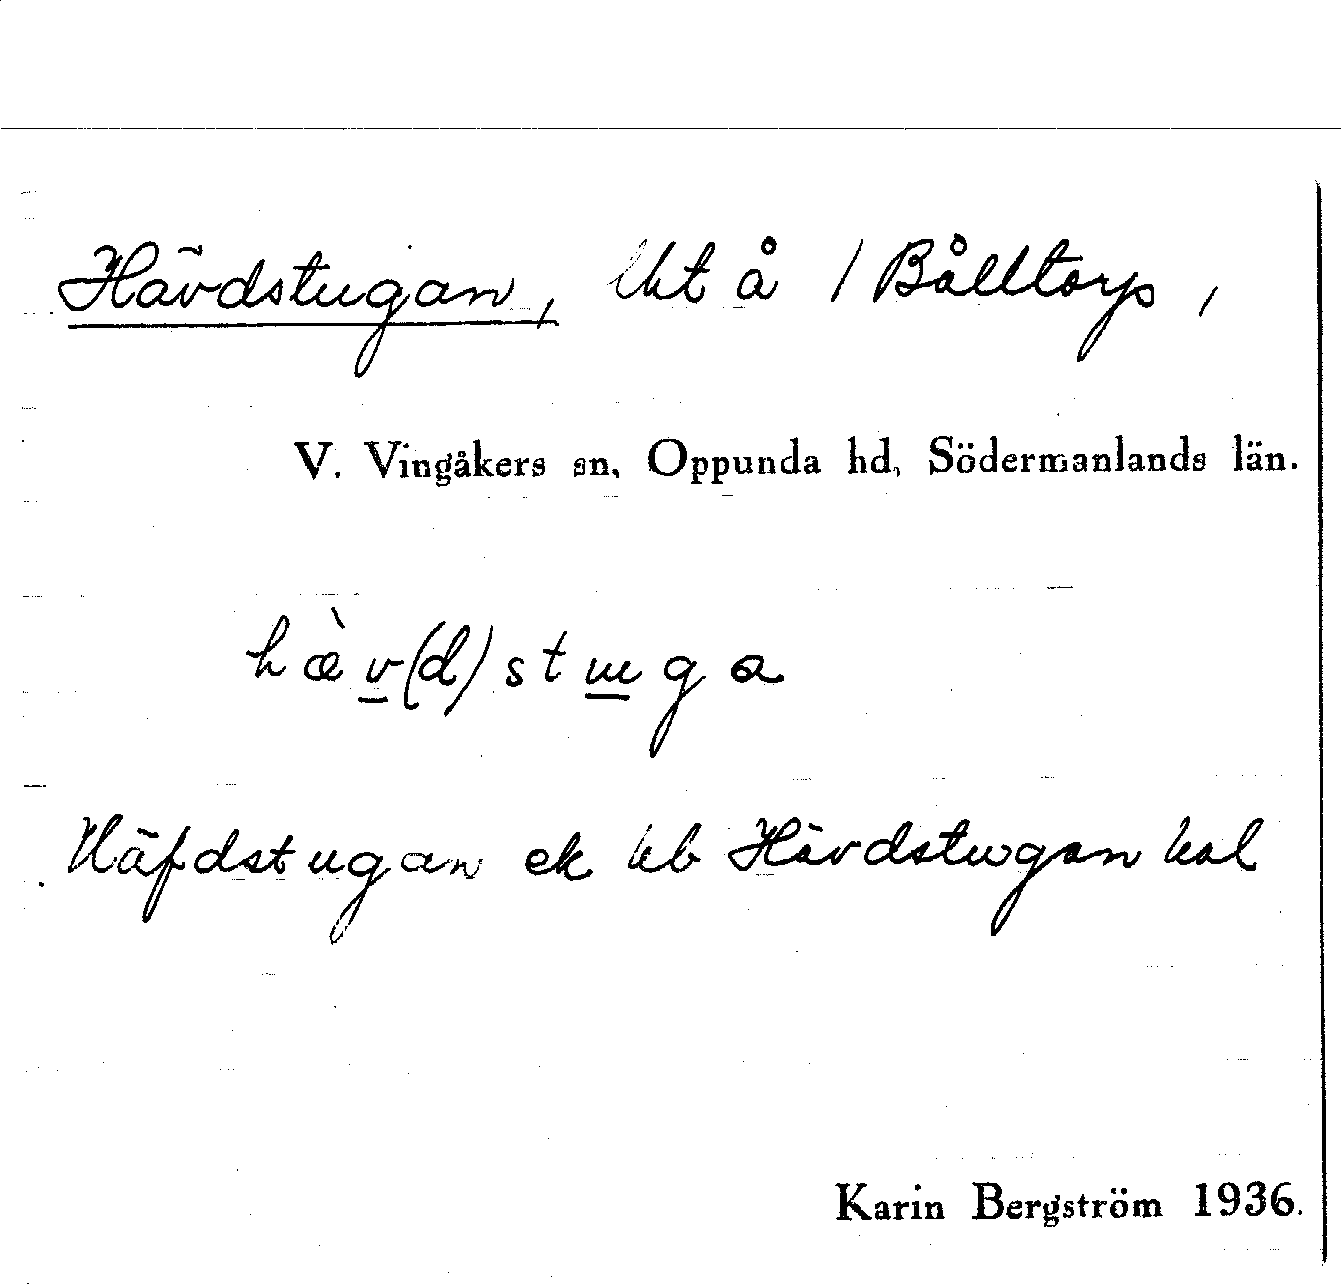 Hävdstugan, lht å / Bålltorp,
V. Vingåkers sn, Oppunda hd, Södermanlands län.
hæ̀v(d)stɯga
Häfdstugan ek hb Hävdstugan hal
Karin Bergström 1936.